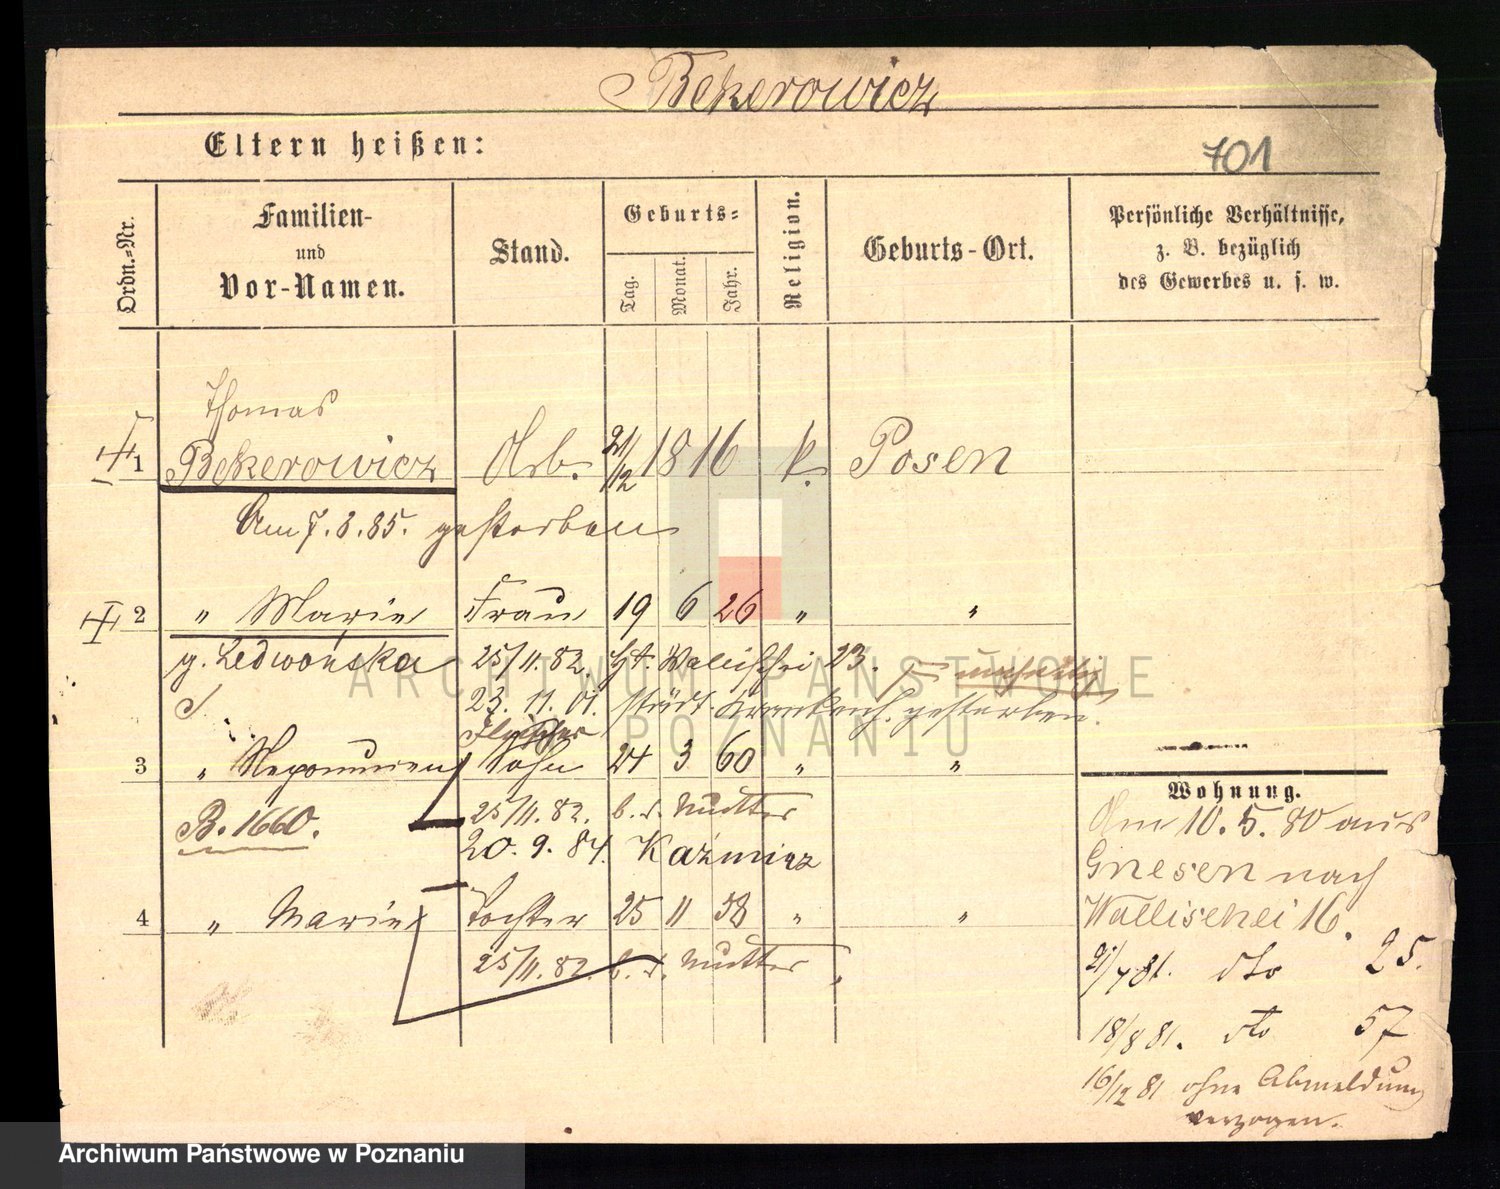 Bekerowicz
Eltern heißen:
701
Ordn.-Nr.
Familien-
und
Vor-Namen.
Stand.
Geburts-
Tag.
Monat.
Jahr.
Religion.
Geburts-Ort.
Persönliche Verhältnisse,
z. B. bezüglich
des Gewerbes u. s. w.
Thomas
1 Bekerowicz Arb. 21/12 1816 k. Posen
Am 7.8.85. gestorben
2 " Marie Frau 19 6 26 " "
g. Ledwońska 25/11. 82. Wallischei 23.
23. 11. 01. städt. Krankenh. gestorben.
3 " Nepomucen Sohn 24 3 60 " "
B. 1660. 25/11. 82. b. d. Mutter
20. 9. 84. Kaźmierz
4 " Marie Tochter 25 11 58 " "
25/11. 82. b. d. Mutter
Wohnung.
Am 10. 5. 80 aus
Gnesen nach
Wallischei 16.
21/7 81. dto 25.
18/8 81. dto 57
16/12 81 ohne Abmeldung
verzogen.
ARCHIWUM PAŃSTWOWE
POZNANIU
Archiwum Państwowe w Poznaniu